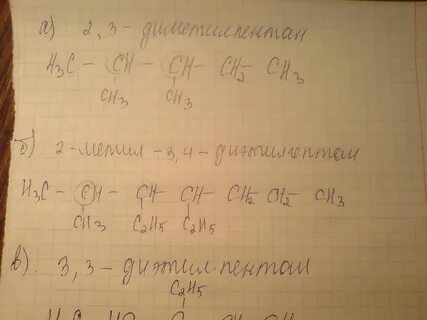 а) 2,3 - диметилпентан
H₃C - CH - CH - CH₂ - CH₃
CH₃ CH₃
б). 2-метил-3,4-диэтилгептан
H₃C - CH - CH - CH - CH₂ - CH₂ - CH₃
CH₃ C₂H₅ C₂H₅
в). 3,3-диэтилпентан
C₂H₅